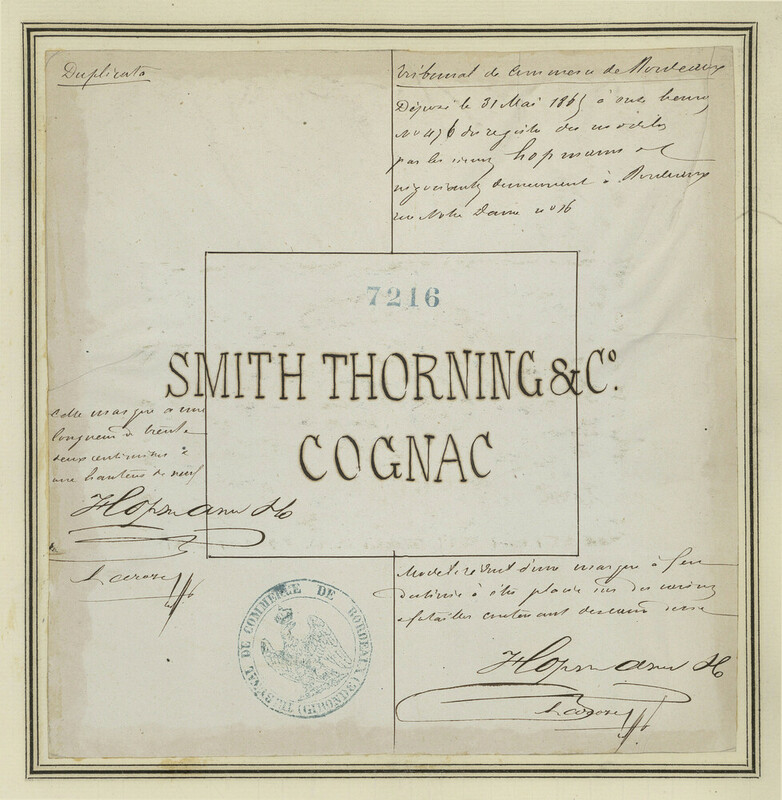 Duplicata
Tribunal de Commerce de Bordeaux
Déposé le 31 Mai 1865 à onze heures
No 476 du registre des modèles
par les sieurs Hopmann et
négociants demeurant à Bordeaux
rue Notre Dame no 76
7216
SMITH THORNING & Co.
COGNAC
Cette marque a une
longueur de trente
deux centimètres &
une hauteur de neuf
Hopmann
Modèle réduit d'une marque à feu
destinée à être placée sur des caisses
& futailles contenant des eaux de vie
Hopmann
TRIBUNAL DE COMMERCE DE BORDEAUX (GIRONDE)